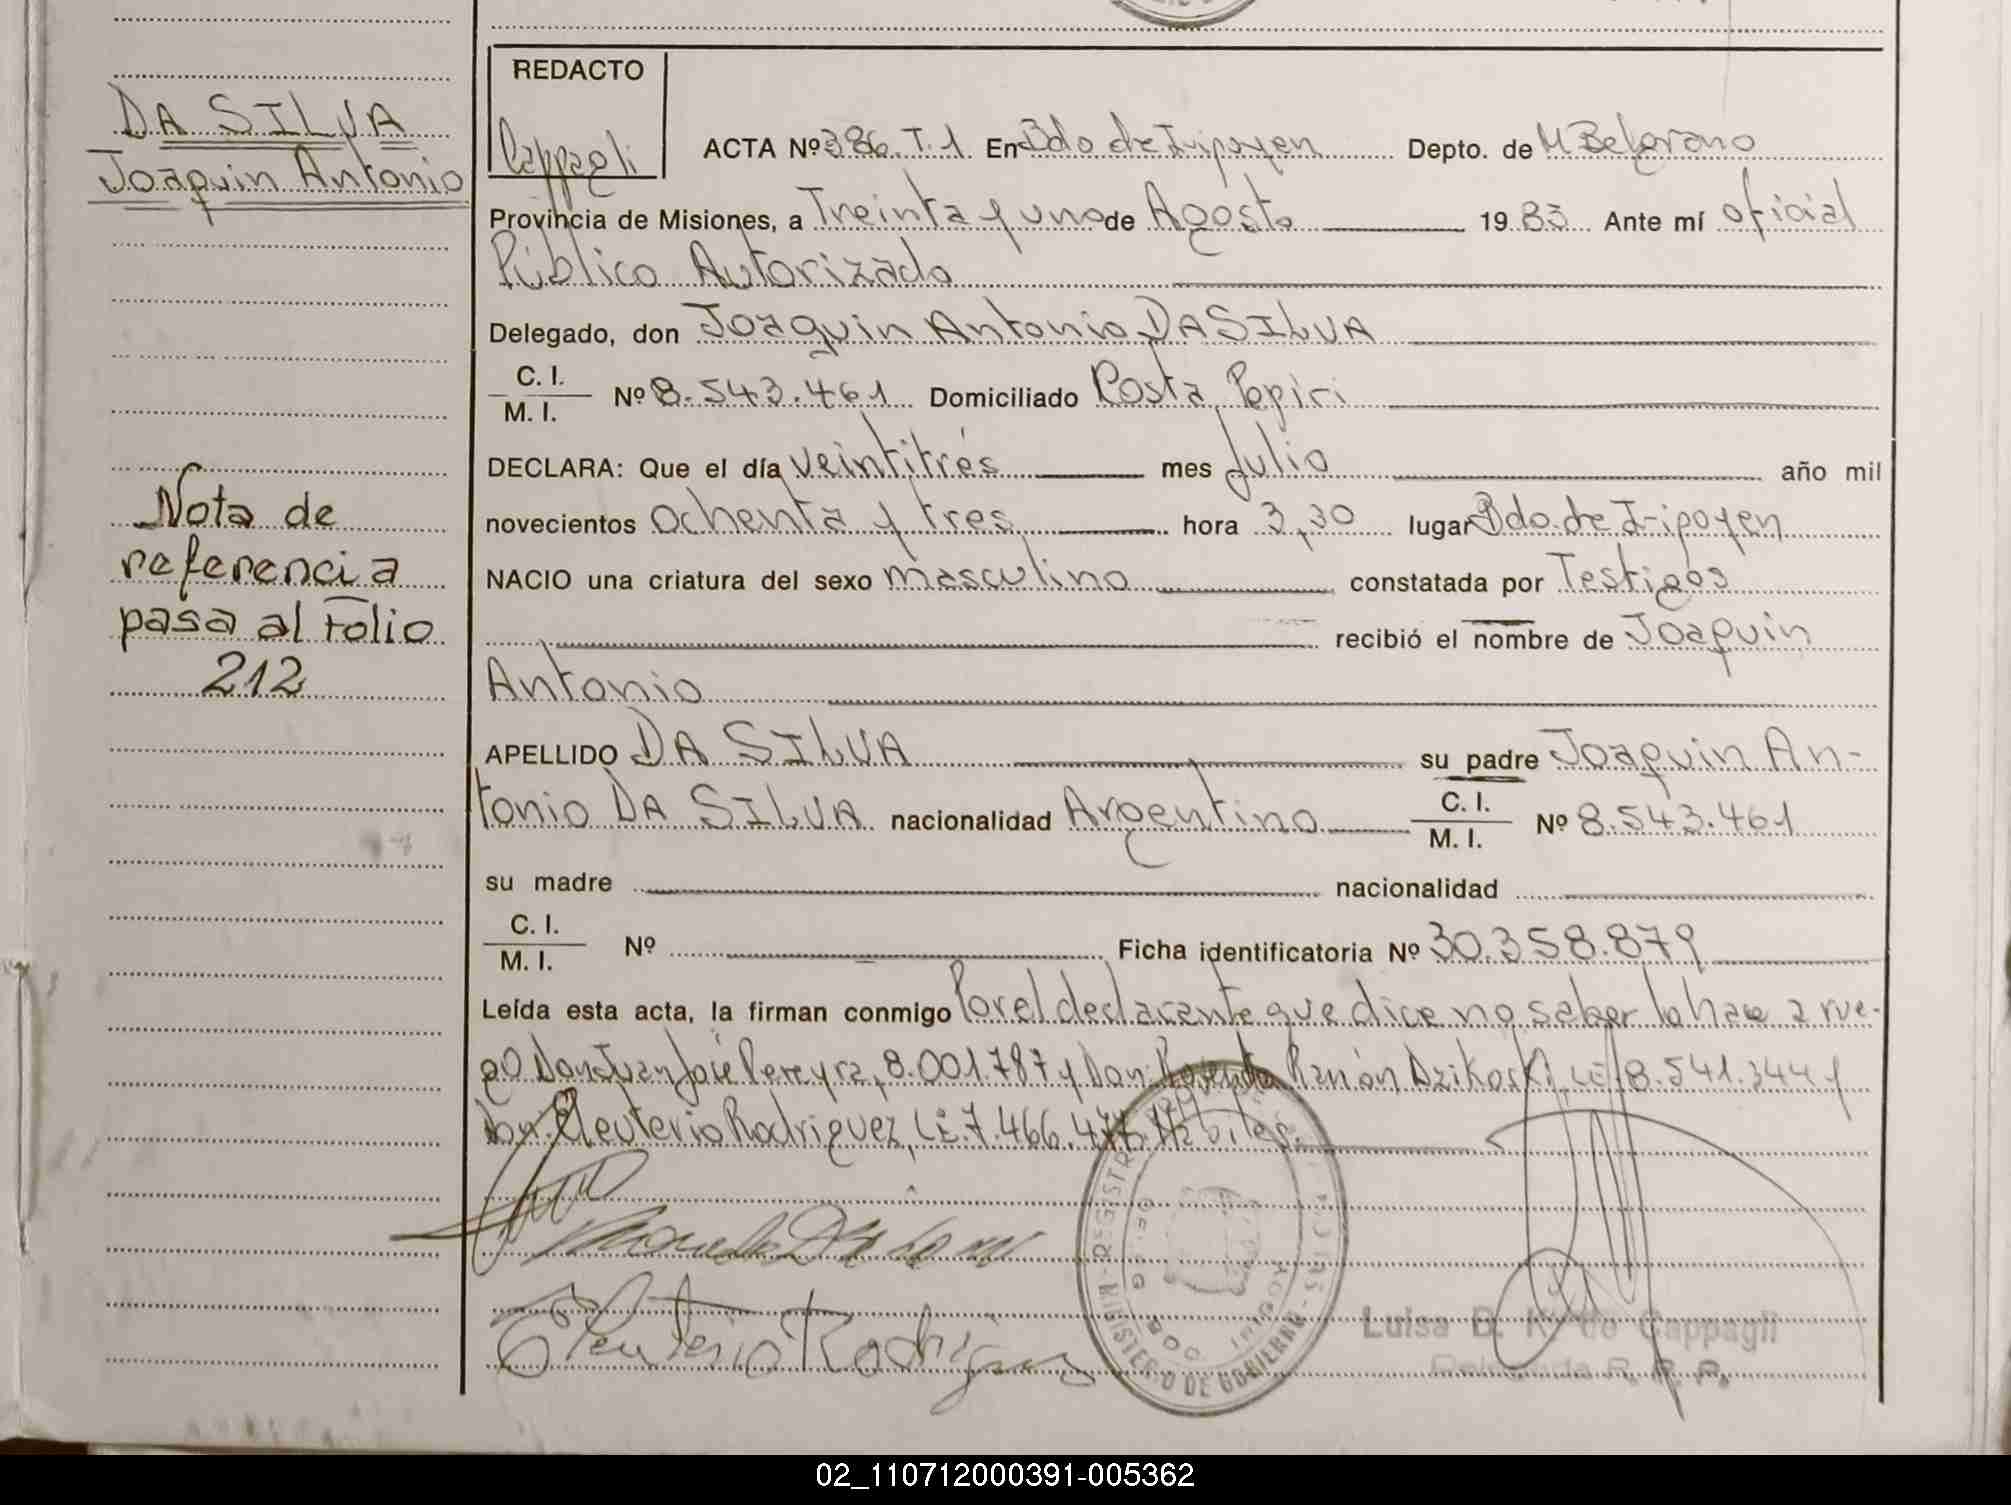 DA SILVA
Joaquin Antonio
Nota de
referencia
pasa al Folio
212
REDACTO
Cappagli
ACTA Nº 386. T.1 En Bdo de Irigoyen Depto. de M Belgrano
Provincia de Misiones, a Treinta y uno de Agosto 1983 Ante mí oficial
Público Autorizado
Delegado, don Joaquin Antonio DA SILVA
C. I.
M. I. Nº 8.543.461 Domiciliado Costa Pepiri
DECLARA: Que el día veintitrés mes Julio año mil
novecientos ochenta y tres hora 3,30 lugar Bdo. de Irigoyen
NACIO una criatura del sexo masculino constatada por Testigos
recibió el nombre de Joaquin
Antonio
APELLIDO DA SILVA su padre Joaquin An-
tonio DA SILVA nacionalidad Argentino C. I.
M. I. Nº 8.543.461
su madre nacionalidad
C. I.
M. I. Nº Ficha identificatoria Nº 30.358.879
Leída esta acta, la firman conmigo Por el declarante que dice no saber lo hace a rue-
go Don Juan José Pereyra, 8.001.787 y Don Ramón Dzikoski, LE 8.541.344 y
Don Eleuterio Rodriguez, LE. 7.466.477. Hábiles.
Eleuterio Rodriguez
MINISTERIO DE GOBIERNO
Luisa B. K. de Cappagli
Delegada R. P.
02_110712000391-005362